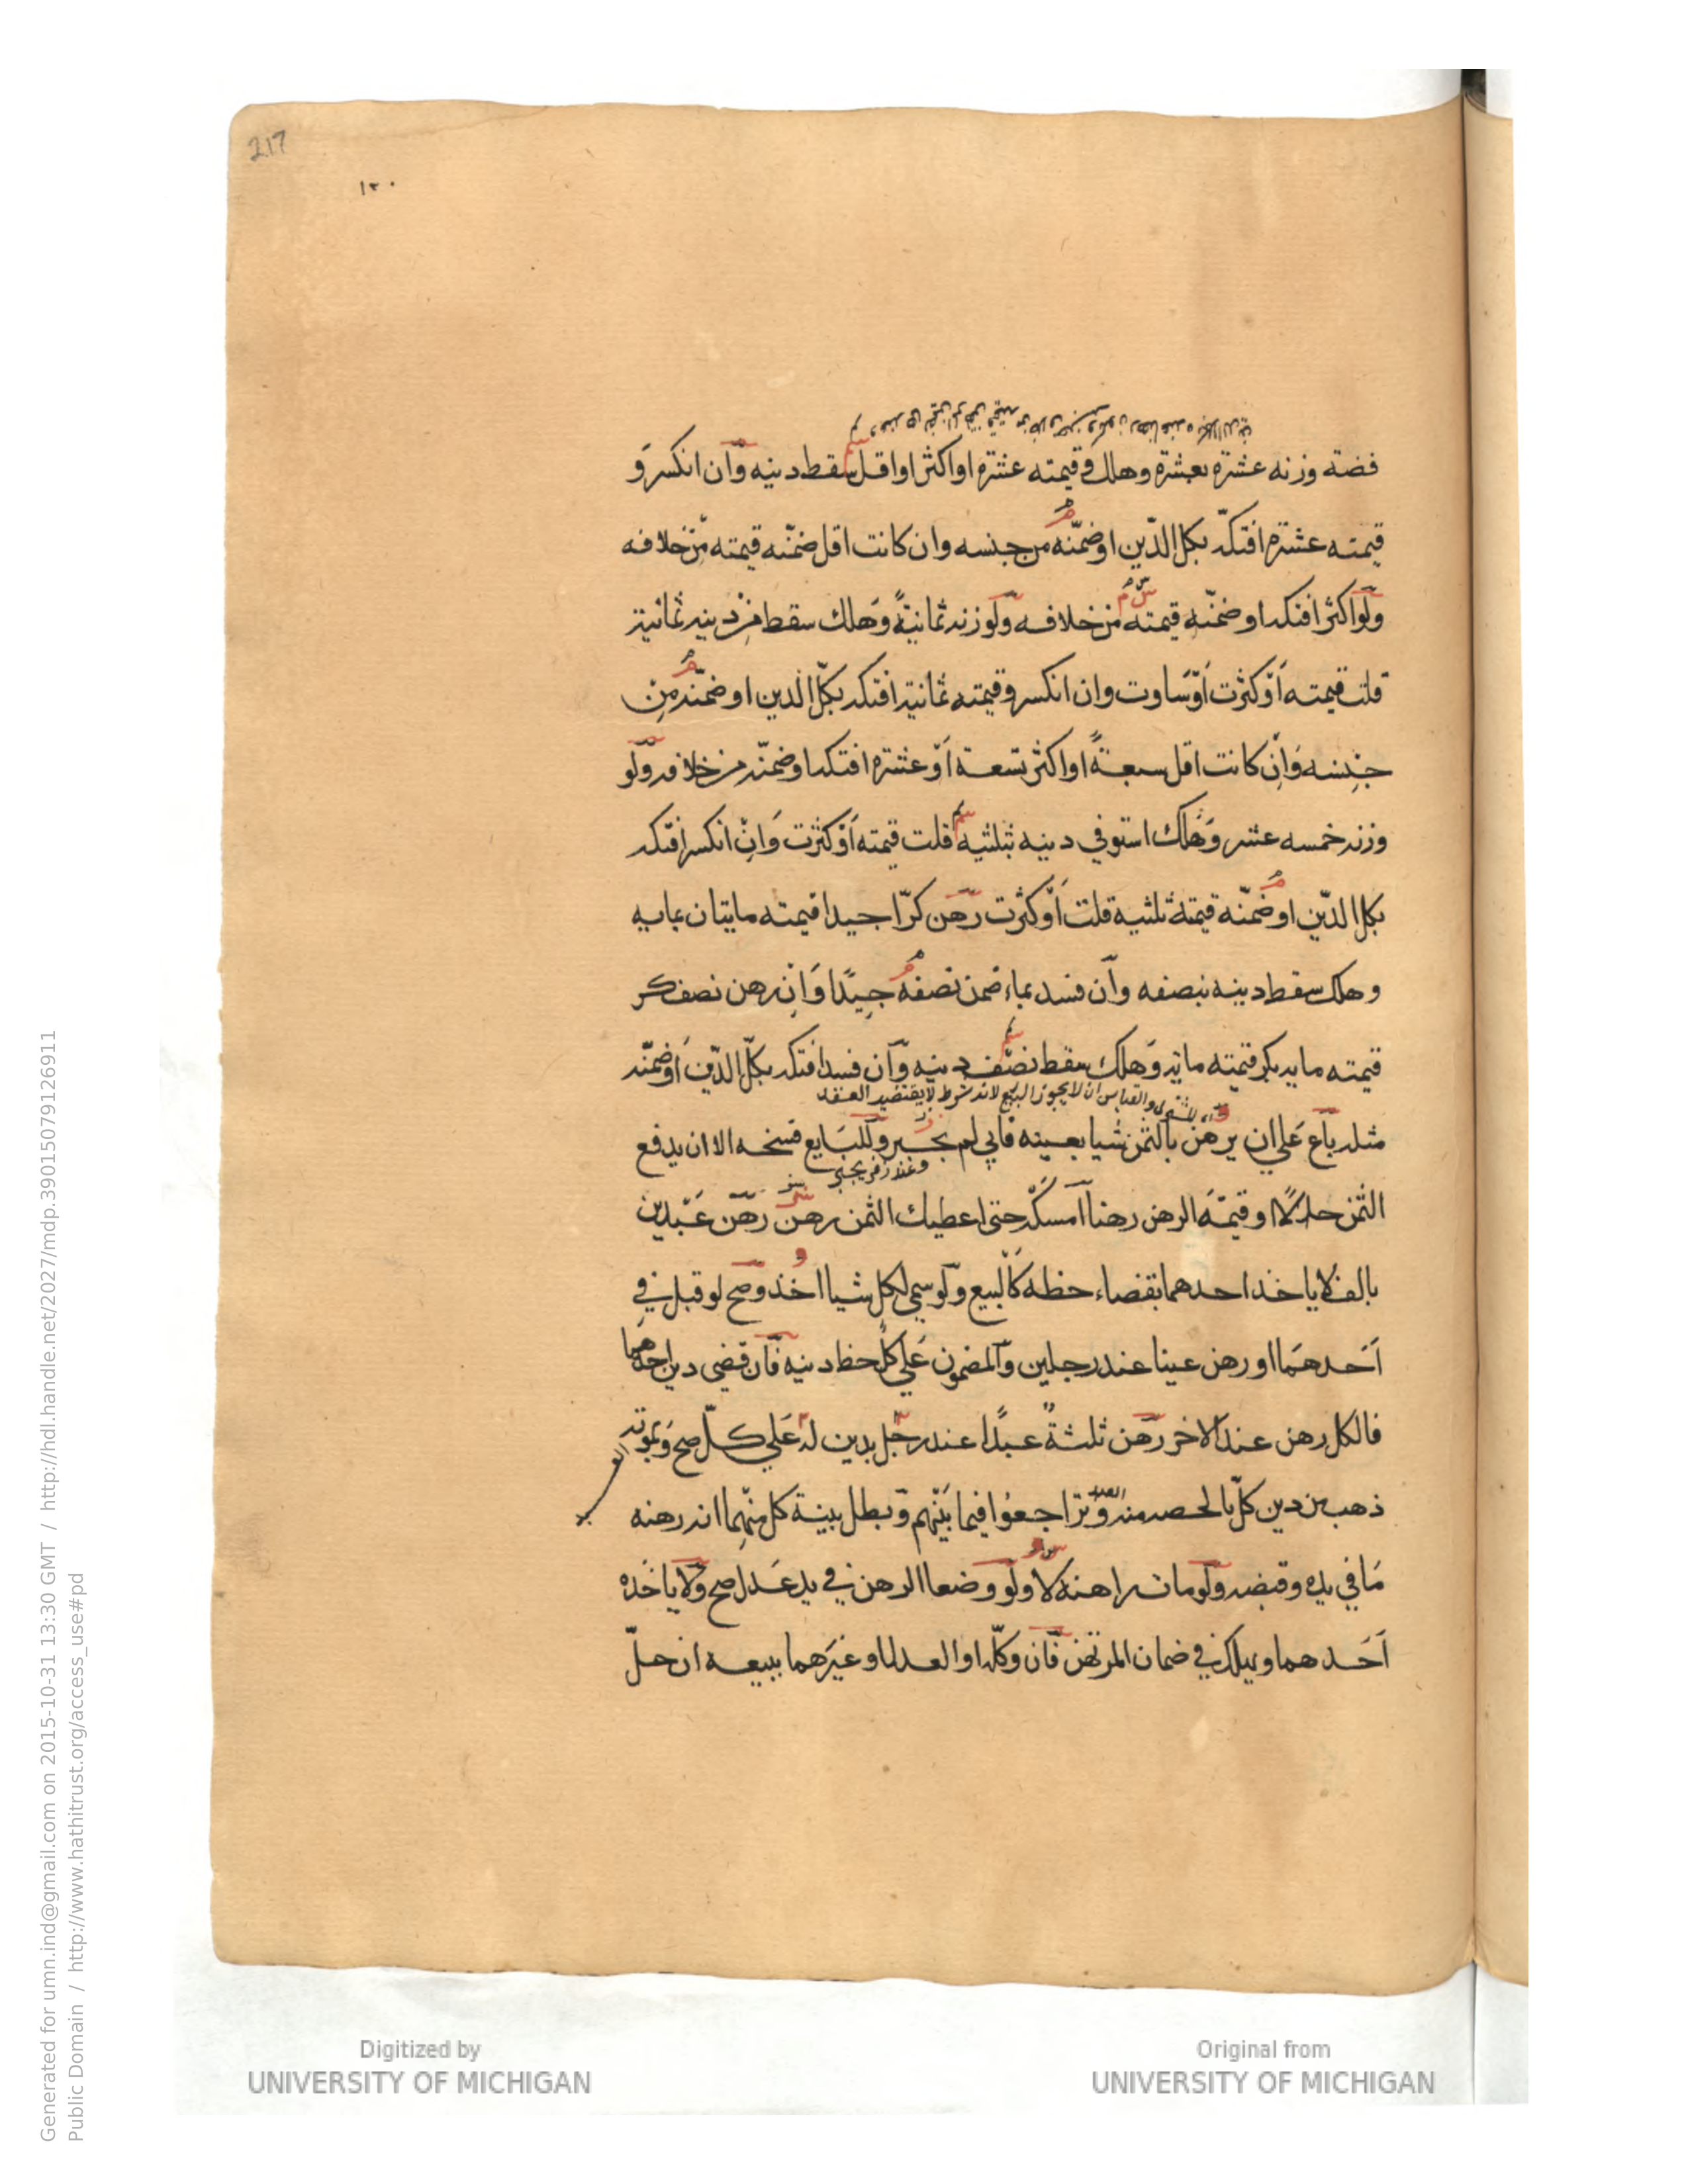 217
١٢٠
فضة وزنه عشرة بعشرة وهلك وقيمته عشرة او اكثر او اقل سقط دينه وان انكسر و
قيمته عشرة افتكه بكل الدين او ضمنه من جنسه وان كانت اقل ضمنه قيمته من خلافه
ولو اكثر افتكه او ضمنه قيمته من خلافه ولو وزنه ثمانية وهلك سقط من دينه ثمانية
قلت قيمته او كثرت او ساوت وان انكسر وقيمته ثمانية افتكه بكل الدين او ضمنه من
جنسه وان كانت اقل سبعة او اكثر تسعة او عشرة افتكه او ضمنه من خلافه ولو
وزنه خمسه عشر وهلك استوفي دينه بثلثيه قلت قيمته او كثرت وان انكسر افتكه
بكل الدين او ضمنه قيمة ثلثيه قلت او كثرت رهن كرا جيدا قيمته مايتان بمايه
وهلك سقط دينه بنصفه وان فسد بماء ضمن نصفه جيدا وان رهن نصف كر
قيمته مايه بكر قيمته مايه وهلك سقط نصف دينه وان فسد افتكه بكل الدين او ضمنه
والقياس ان لا يجوز البيع لانه شرط لا يقتضيه العقد
مثله باع علي ان يرهن بالثمن شيا بعينه فابي لم يجبر وللبايع فسخه الا ان يدفع
وعند زفر يجبر
الثمن حالا او قيمة الرهن رهنا امسكه حتى اعطيك الثمن رهن رهن عبدين
بالف لا ياخذ احدهما بقضاء حظه كالبيع ولو سمي لكل شيا اخذ وصح لو قبل في
احدهما او رهن عينا عند رجلين والمضمون علي كل حظ دينه فان قضي دين احدهما
فالكل رهن عند الاخر رهن ثلثة عبدا عند رجل بدين له علي كل صح وبموته
ذهب من دين كل بالحصه منه وتراجعوا فيما بينهم وبطل بينة كل منهما انه رهنه
العبد
ما في يده وقبضه ولو مات راهنه لا ولو وضعا الرهن في يد عدل صح ولا ياخذه
احدهما ويهلك في ضمان المرتهن فان وكله او العدل او غيرهما ببيعه ان حل
Digitized by
UNIVERSITY OF MICHIGAN
Original from
UNIVERSITY OF MICHIGAN
Generated for umn.ind@gmail.com on 2015-10-31 13:30 GMT / http://hdl.handle.net/2027/mdp.39015079126911
Public Domain / http://www.hathitrust.org/access_use#pd